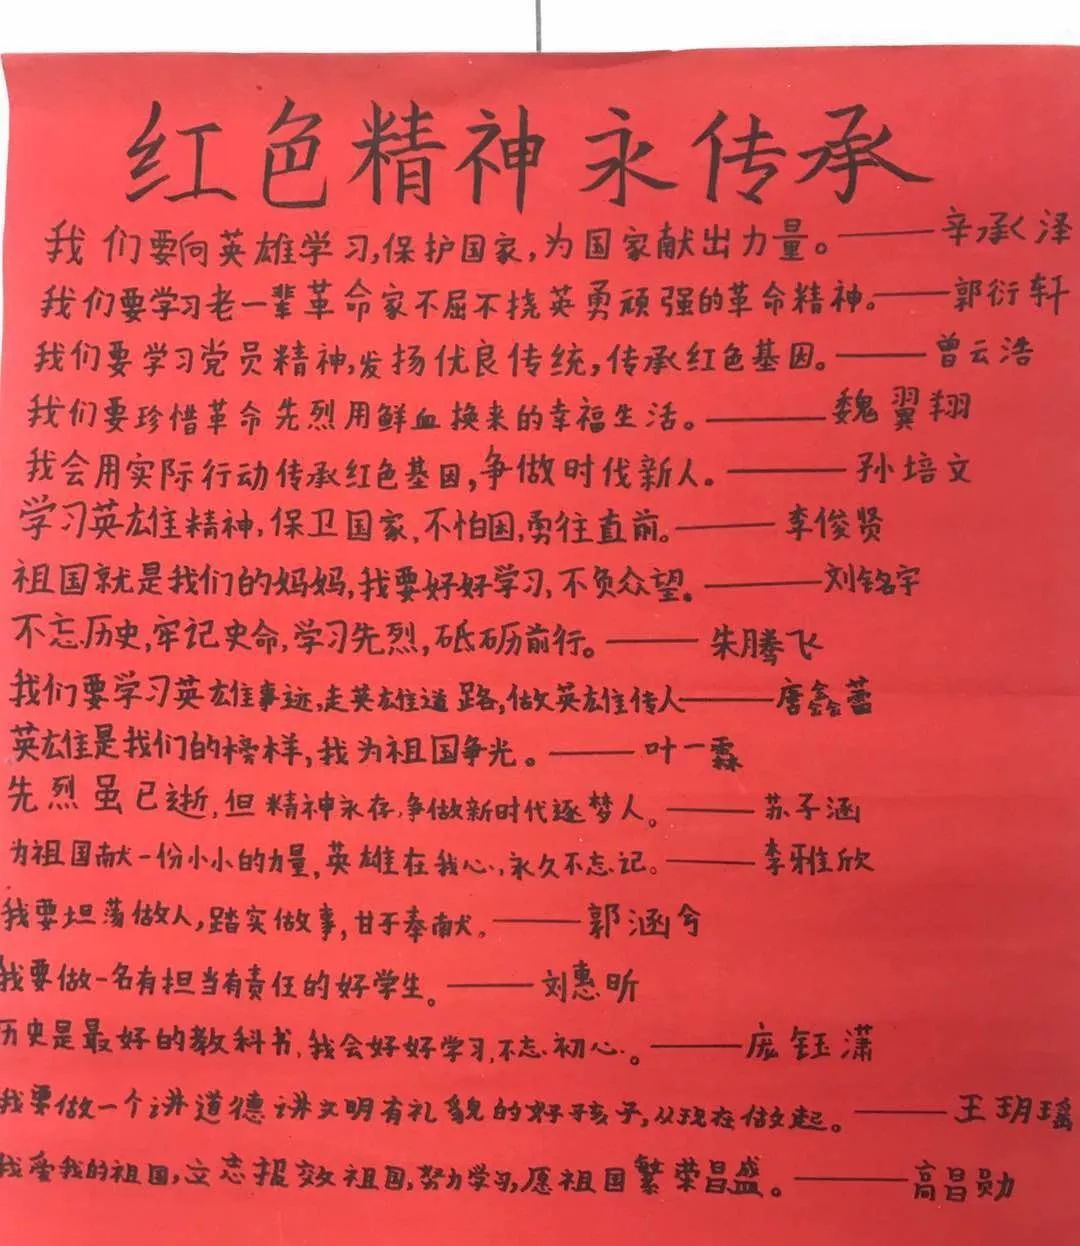 红色精神永传承
我们要向英雄学习,保护国家,为国家献出力量。——辛承泽
我们要学习老一辈革命家不屈不挠英勇顽强的革命精神。——郭衍轩
我们要学习党员精神,发扬优良传统,传承红色基因。——曾云浩
我们要珍惜革命先烈用鲜血换来的幸福生活。——魏翼翔
我会用实际行动传承红色基因,争做时代新人。——孙培文
学习英雄精神,保卫国家,不怕困,勇往直前。——李俊贤
祖国就是我们的妈妈,我要好好学习,不负众望。——刘铭宇
不忘历史,牢记史命,学习先烈,砥砺前行。——朱腾飞
我们要学习英雄事迹,走英雄道路,做英雄传人——唐鑫蕾
英雄是我们的榜样,我为祖国争光。——叶一霖
先烈虽已逝,但精神永存,争做新时代逐梦人。——苏子涵
为祖国献一份小小的力量,英雄在我心,永久不忘记。——李雅欣
我要坦荡做人,踏实做事,甘于奉献。——郭涵兮
我要做一名有担当有责任的好学生。——刘惠昕
历史是最好的教科书,我会好好学习,不忘初心。——庞钰潇
我要做一个讲道德讲文明有礼貌的好孩子,从现在做起。——王玥瑶
我爱我的祖国,立志报效祖国,努力学习,愿祖国繁荣昌盛。——高昌勋